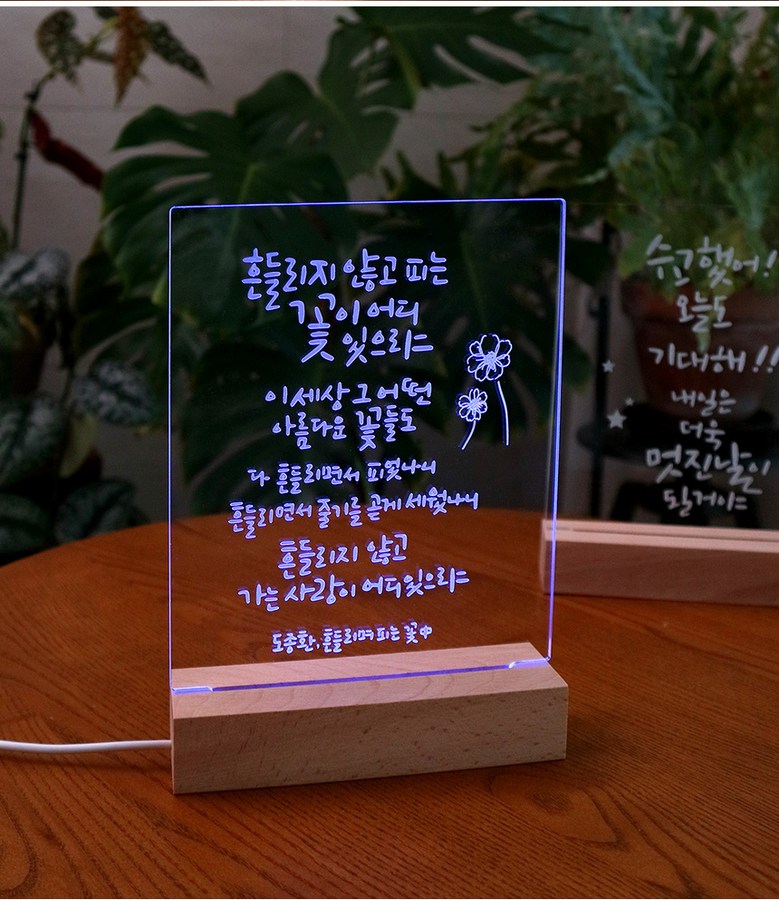 흔들리지 않고 피는
꽃이 어디
있으랴
이 세상 그 어떤
아름다운 꽃들도
다 흔들리면서 피었나니
흔들리면서 줄기를 곧게 세웠나니
흔들리지 않고
가는 사랑이 어디 있으랴
도종환, 흔들리며 피는 꽃 中
수고했어!
오늘도
기대해!!
내일은
더욱
멋진날이
될거야